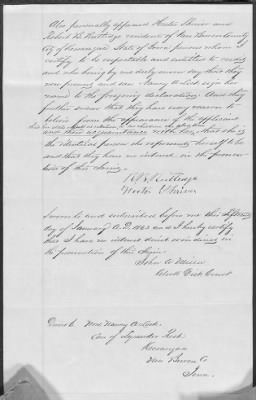 Also personally appeared Hester Shriver and
Robert B. Rutledge residents of Van Buren County
City of Keosauqua State of Iowa persons whom I
certify to be respectable and entitled to credit
and who being by me duly sworn say that they
were present and saw Nancy A. Leek sign her
name to the foregoing declaration And they
further swear that they have every reason to
believe from the appearance of the applicant
and their acquaintance with her, that she is
the identical person she represents herself to be
and that they have no interest in the prosecu-
tion of this claim.
R. B. Rutledge
Hester Shriver
Sworn to and subscribed before me this
day of January A.D. 1863 and I hereby certify
that I have no interest direct or indirect in
the prosecution of this claim.
John W. Miller
Clerk Dist Court
Direct to Mrs Nancy A. Leek
Care of Lysander Leek
Keosauqua
Van Buren Co
Iowa.